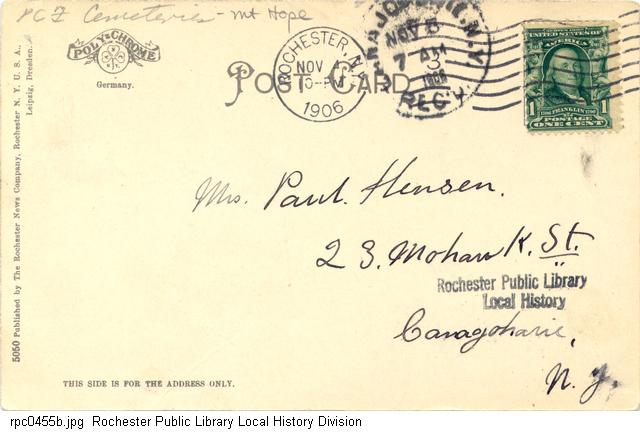 PC Z Cemeteries - Mt Hope
POLY-CHROME
Germany.
POST CARD
ROCHESTER, N.Y.
NOV 4
1906
NOV 5
7 AM
1906
REC'D
UNITED STATES OF
AMERICA
FRANKLIN
1 1
POSTAGE
ONE CENT
5050 Published by The Rochester News Company, Rochester N. Y. U. S. A.,
Leipzig, Dresden.
Mrs. Paul. Hensen.
23. Mohawk. St.
Rochester Public Library
Local History
Canagoharie,
N. Y.
THIS SIDE IS FOR THE ADDRESS ONLY.
rpc0455b.jpg Rochester Public Library Local History Division